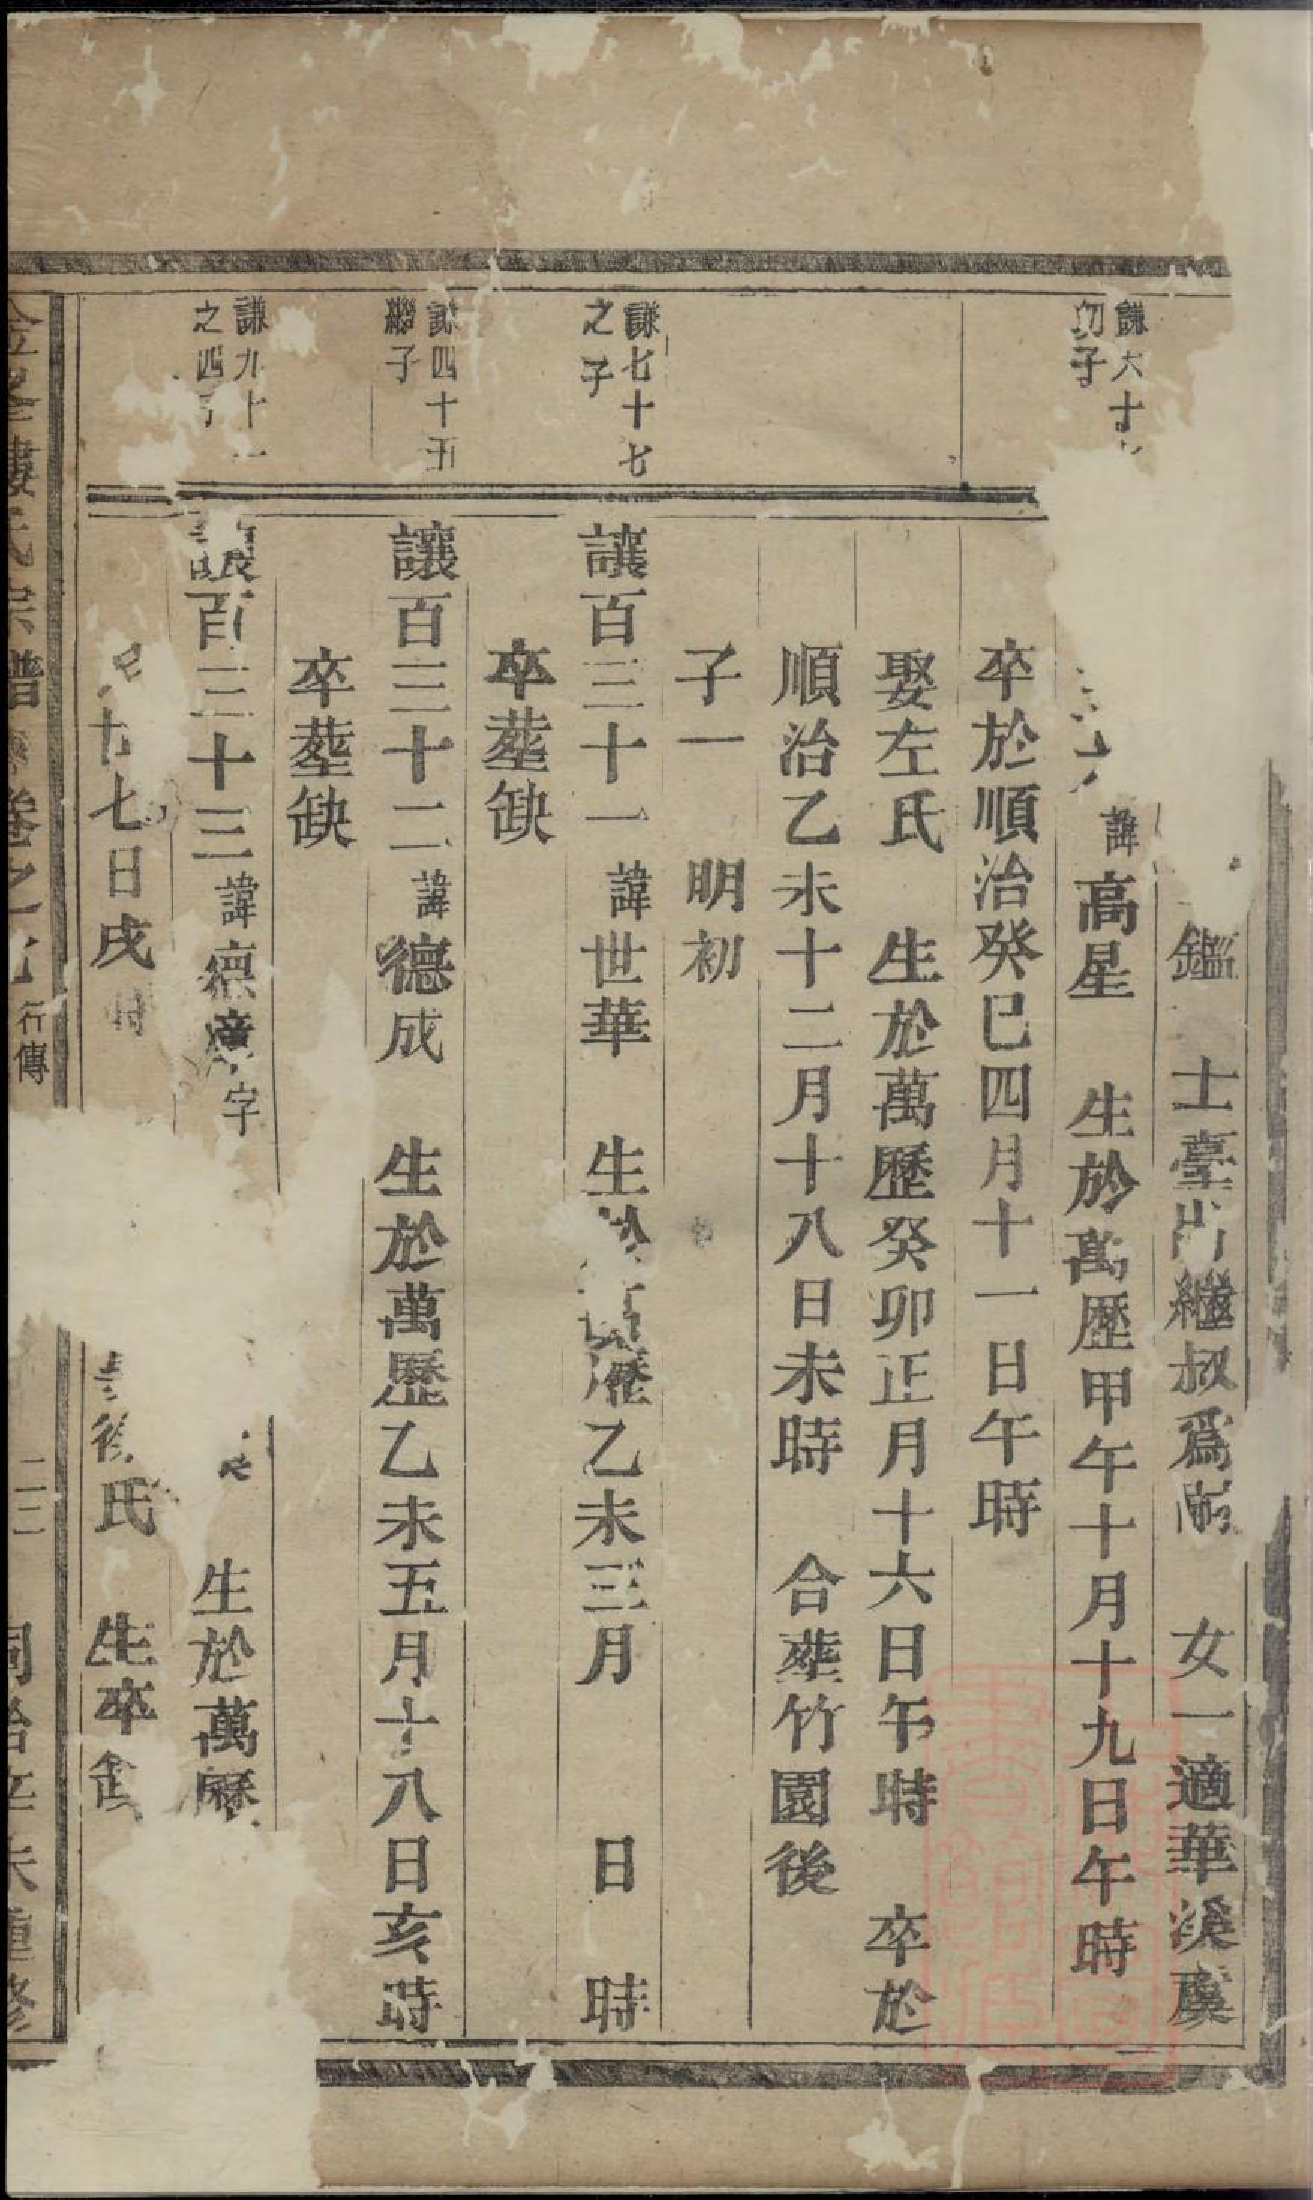 鑑　士臺出繼叔爲嗣　女一適華溪虞
謙六十
幼子
諱高星　生於萬歷甲午十月十九日午時
卒於順治癸巳四月十一日午時
娶左氏　生於萬歷癸卯正月十六日午時　卒於
順治乙未十二月十八日未時　合塟竹園後
子一　明初
謙七十七
之子
讓百三十一諱世華　生於萬歷乙未三月　日　時
卒塟缺
謙四十五
繼子
讓百三十二諱德成　生於萬歷乙未五月十八日亥時
卒塟缺
謙九十一
之四子
讓百三十三諱德　字　生於萬歷
七日戌時　徐氏　生卒缺
樓氏宗譜　卷之　行傳　二二　同治辛未重修